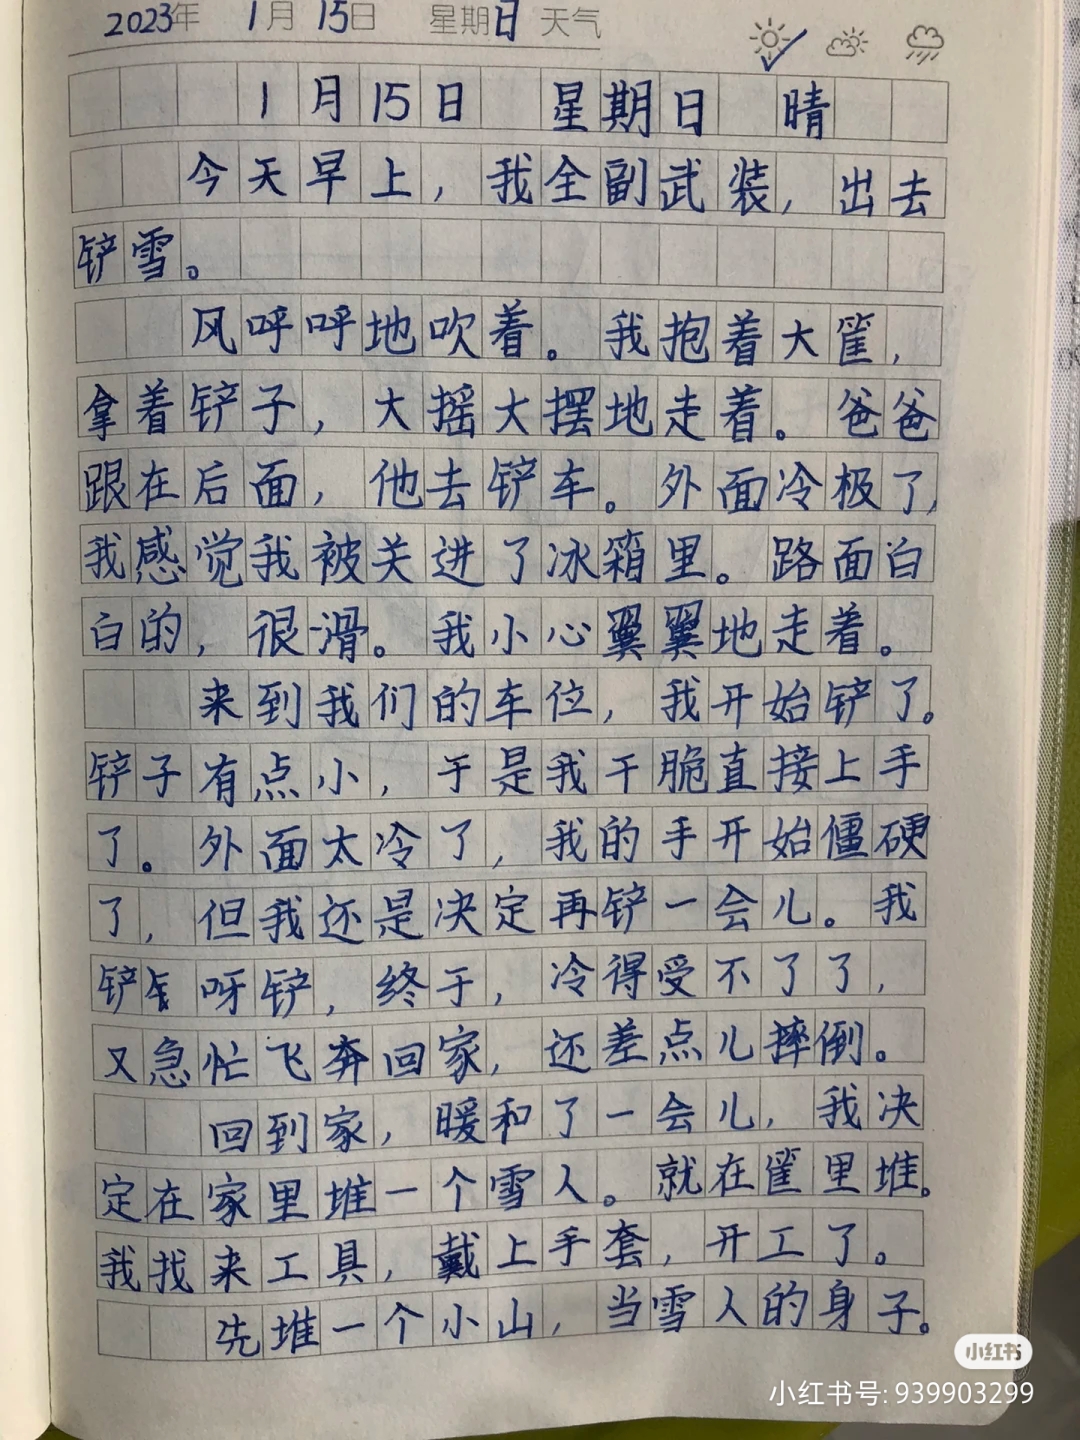 2023年 1月15日 星期日 天气
1月15日 星期日 晴
今天早上，我全副武装，出去
铲雪。
风呼呼地吹着。我抱着大筐，
拿着铲子，大摇大摆地走着。爸爸
跟在后面，他去铲车。外面冷极了，
我感觉我被关进了冰箱里。路面白
白的，很滑。我小心翼翼地走着。
来到我们的车位，我开始铲了。
铲子有点小，于是我干脆直接上手
了。外面太冷了，我的手开始僵硬
了，但我还是决定再铲一会儿。我
铲呀铲，终于，冷得受不了了，
又急忙飞奔回家，还差点儿摔倒。
回到家，暖和了一会儿，我决
定在家里堆一个雪人。就在筐里堆。
我找来工具，戴上手套，开工了。
先堆一个小山，当雪人的身子。
小红书
小红书号: 939903299